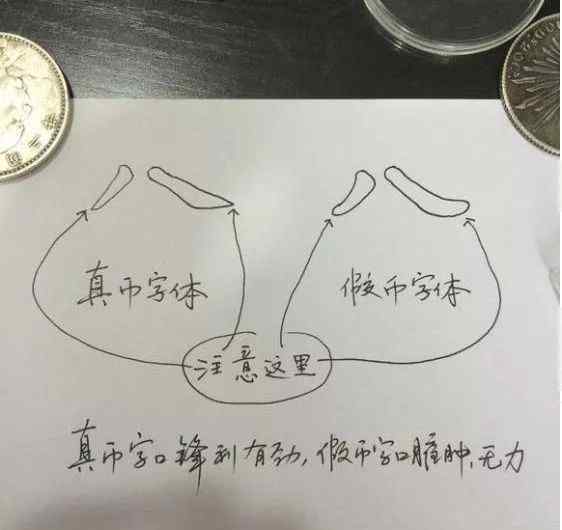 真币字体
假币字体
注意这里
真币字口锋利有劲,假币字口臃肿、无力